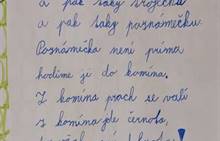 a pak taky trojčku
a pak taky poznámečku.
Poznámečka není prima
hodíme ji do komína.
Z komína prach se valí
z komína jde černota,